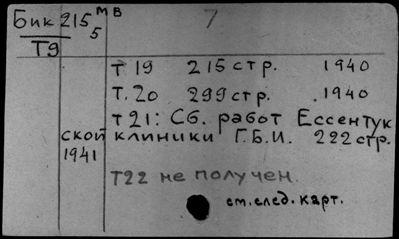 Бик 215 мв 7
5
Т9
т 19 215 стр. 1940
т. 20 299 стр. .1940
т 21: Сб. работ Ессентук
ской клиники Г.Б.И. 222 стр.
1941
т22 не получен.
см. след. карт.